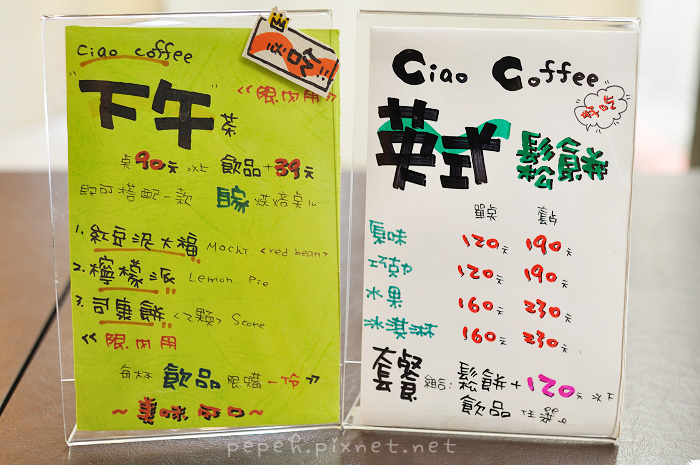 Ciao coffee
必吃!!!
下午茶
<<限內用>>
點90元以上 飲品+39元
即可搭配一款 自家烘焙点心
1. 紅豆泥大福 Mochi <red bean>
2. 檸檬派 Lemon Pie
3. 司康餅 <2顆> Score
<<限內用
每杯 飲品 限購一份
~美味可口~
Ciao Coffee
英式鬆餅
單点 套点
原味 120元 190元
巧克力 120元 190元
水果 160元 230元
冰淇淋 160元 230元
套餐 組合: 鬆餅+120元以下
飲品 任選
pepeh.pixnet.net